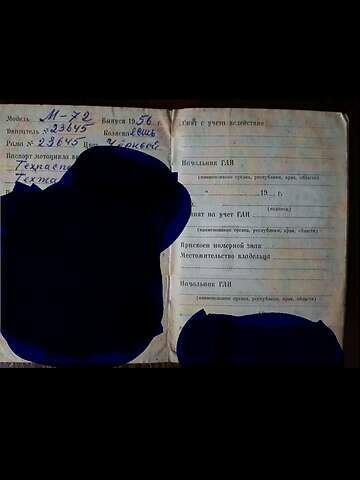 Модель М-72 Выпуск 1956 г.
Двигатель № 23645 Коляска есть
Рама № 23645 Цвет Чёрный
Паспорт мотоцикла
Техпасп
Техжа
Снят с учета
Начальник ГАИ
(наименование органа, республики, края, области)
" 19 г.
(подпись)
ят на учет ГАИ
(наименование органа, республики, края, области)
Присвоен номерной знак
Местожительство владельца
Начальник ГАИ
(наименование органа, республики, края, области)
19 г.